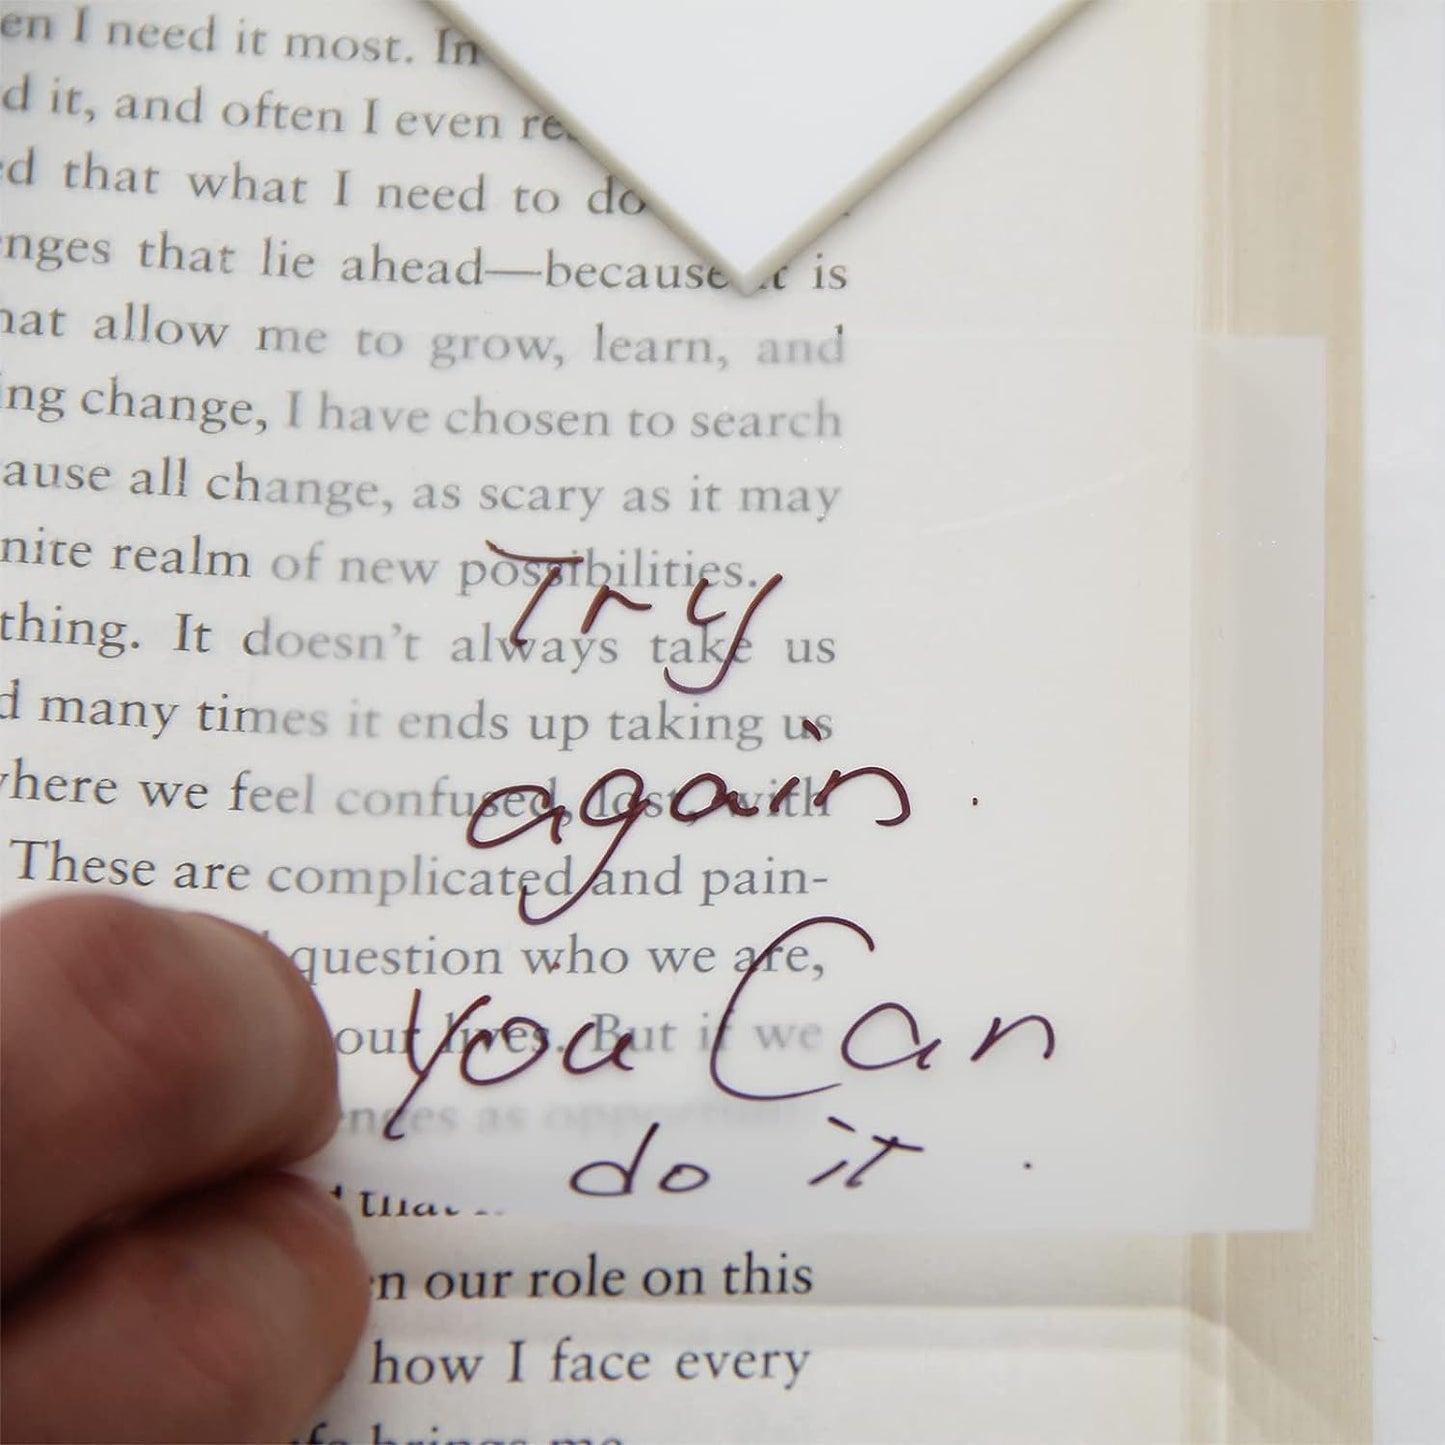 en I need it most. In
d it, and often I even
ed that what I need to do
nges that lie ahead—because it is
hat allow me to grow, learn, and
ing change, I have chosen to search
ause all change, as scary as it may
nite realm of new possibilities.
Try
thing. It doesn’t always take us
d many times it ends up taking us
where we feel confused, lost, with
again.
These are complicated and pain-
question who we are,
our lives. But if we
you Can
enges as
do it.
that
en our role on this
how I face every
brings me